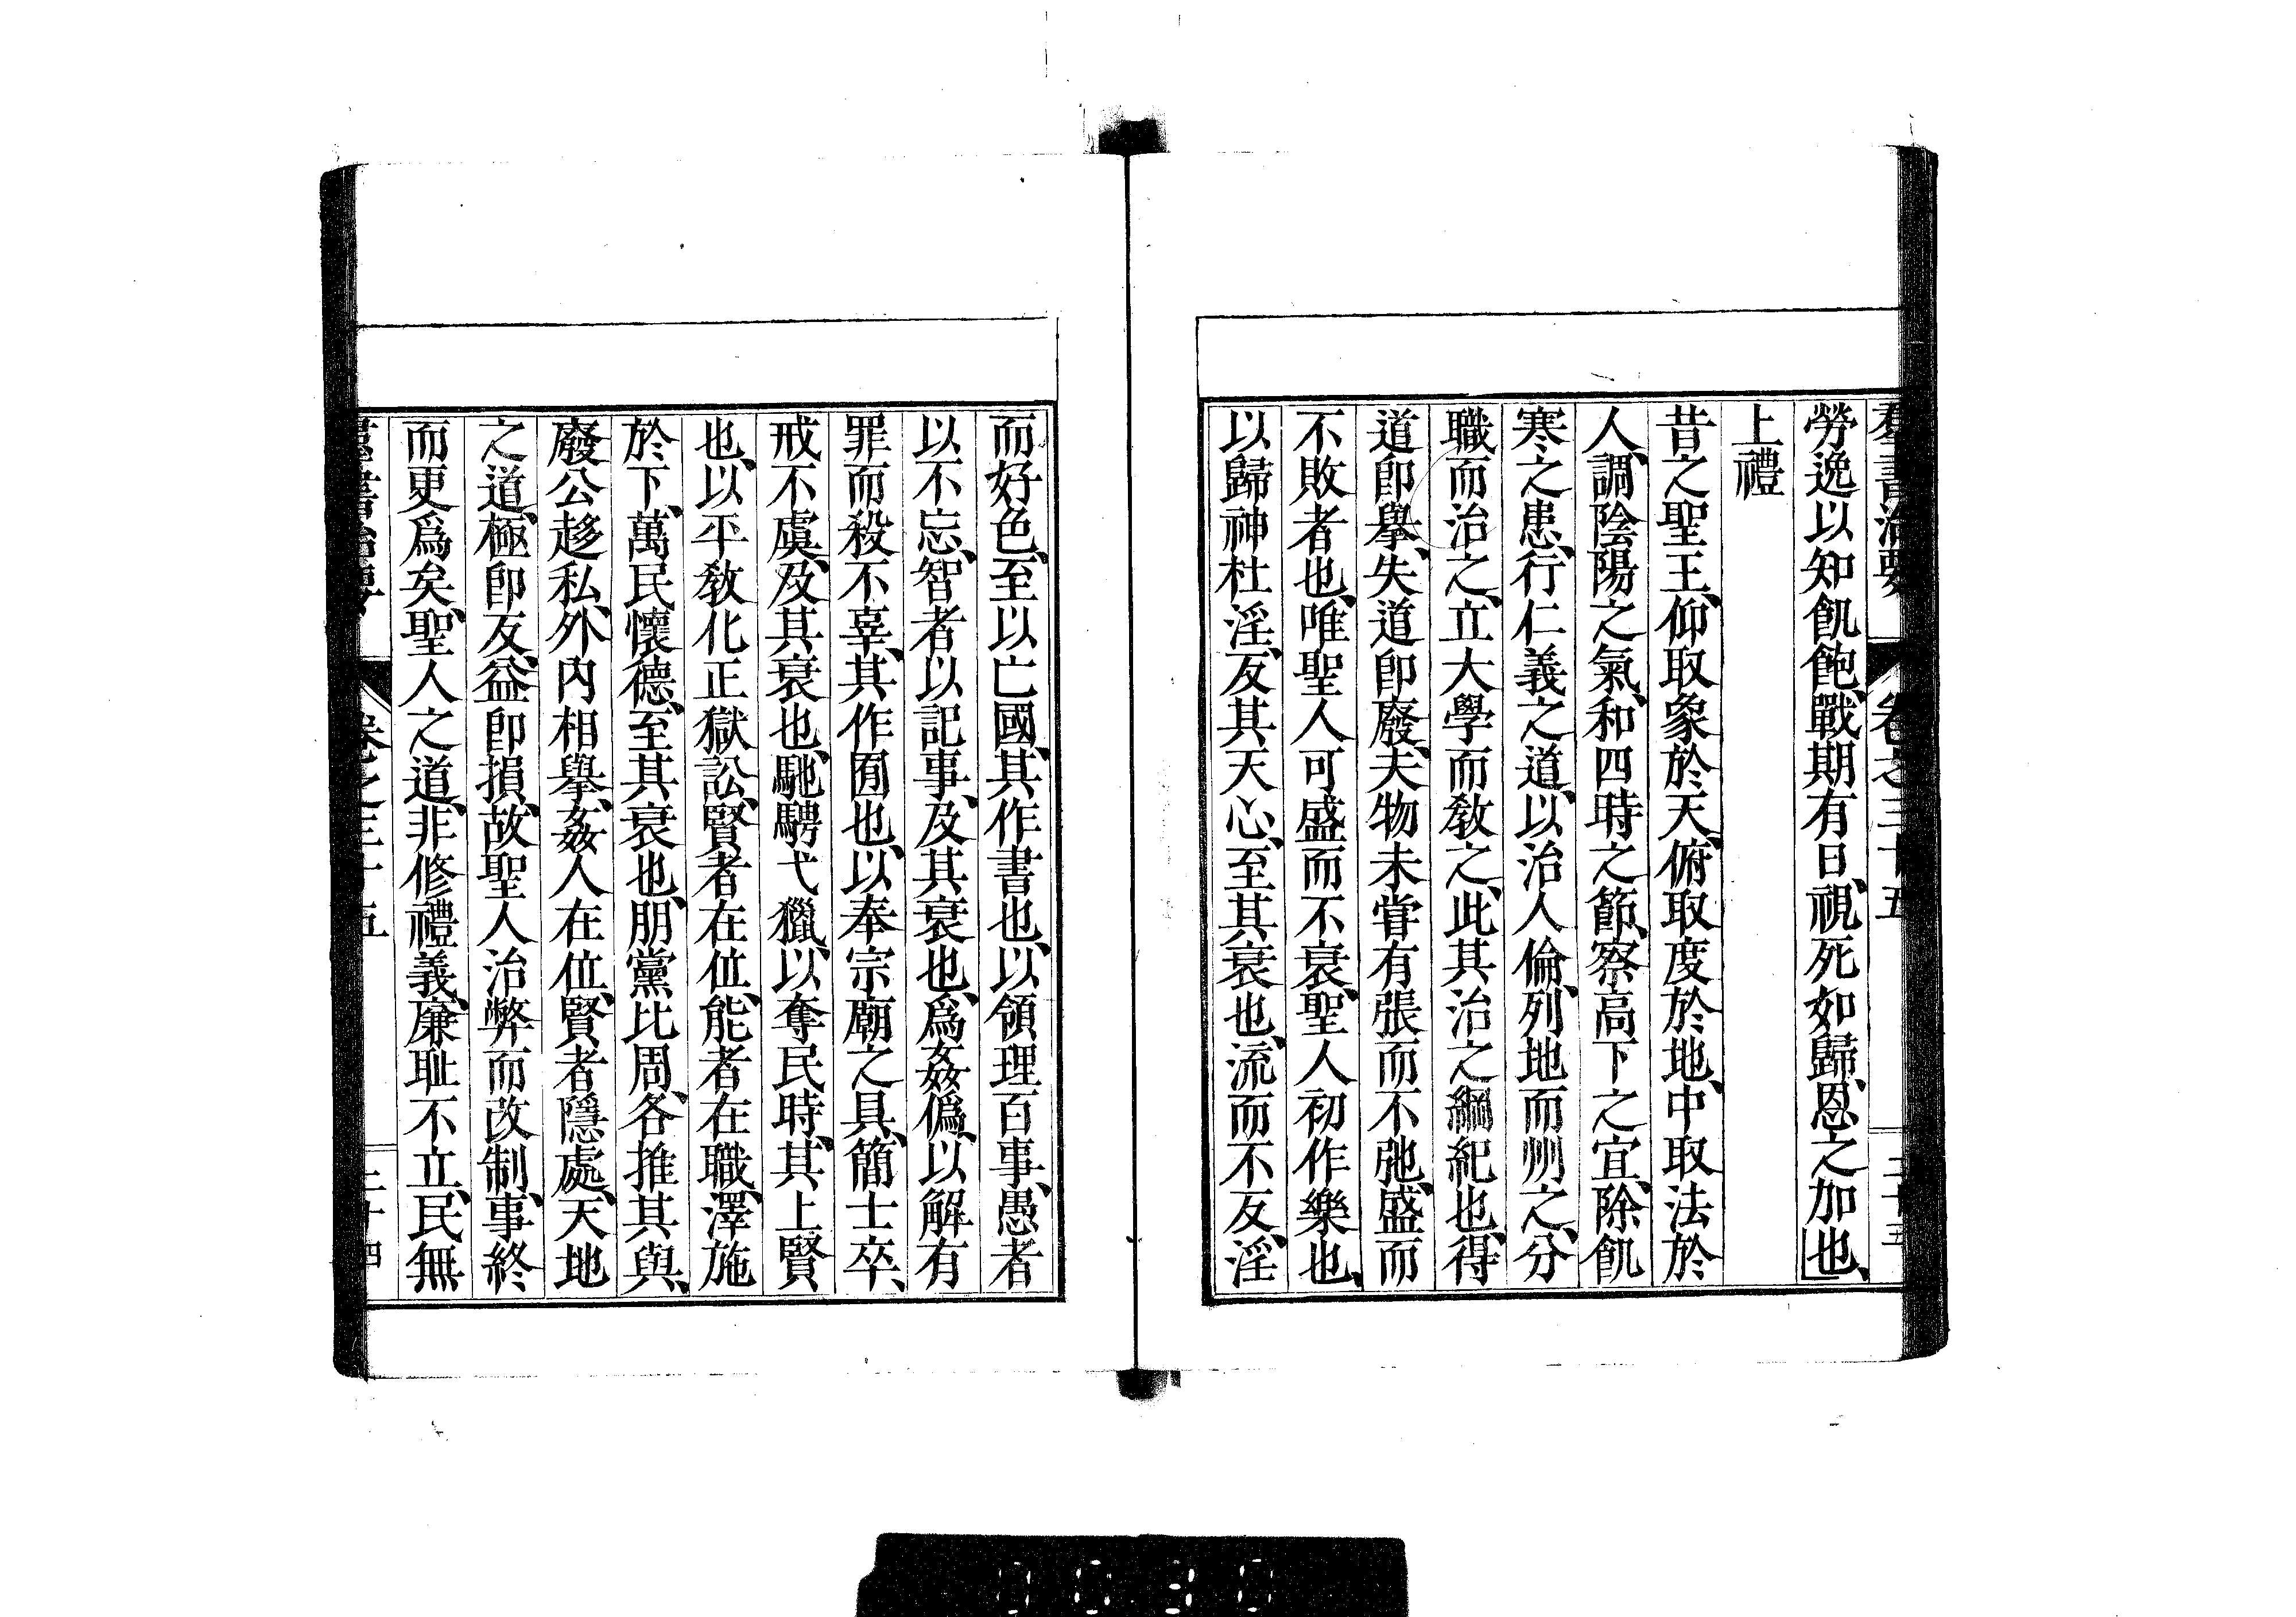 羣書治要 卷之三十五 二十五
勞逸以知飢飽、戰期有日、視死如歸、恩之加也、
上禮
昔之聖王、仰取象於天、俯取度於地、中取法於
人、調陰陽之氣、和四時之節、察高下之宜、除飢
寒之患、行仁義之道、以治人倫、列地而州之、分
職而治之、立大學而敎之、此其治之綱紀也、得
道卽擧、失道卽廢、夫物未甞有張而不弛、盛而
不敗者也、唯聖人可盛而不衰、聖人初作樂也、
以歸神杜淫、反其天心、至其衰也、流而不反、淫
而好色、至以亡國、其作書也、以領理百事、愚者
以不忘、智者以記事、及其衰也、爲姦僞、以解有
罪而殺不辜、其作囿也、以奉宗廟之具、簡士卒、
戒不虞、及其衰也、馳騁弋獵、以奪民時、其上賢
也、以平敎化正獄訟、賢者在位、能者在職、澤施
於下、萬民懷德、至其衰也、朋黨比周、各推其與、
廢公趍私、外內相擧、姦人在位、賢者隱處、天地
之道、極卽反、益卽損、故聖人治弊而改制、事終
而更爲矣、聖人之道、非修禮義、廉耻不立、民無
羣書治要 卷之三十五 二十四